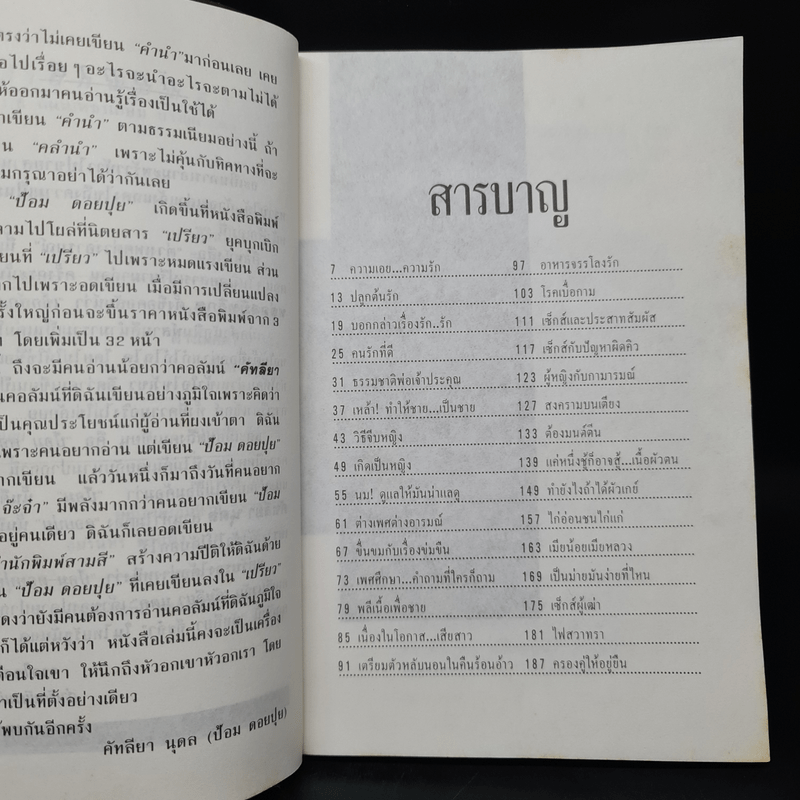 ตรงว่าไม่เคยเขียน “คำนำ”มาก่อนเลย เคย
อไปเรื่อย ๆ อะไรจะนำอะไรจะตามไม่ได้
ห้ออกมาคนอ่านรู้เรื่องเป็นใช้ได้
าเขียน “คำนำ” ตามธรรมเนียมอย่างนี้ ถ้า
น “คลำนำ” เพราะไม่คุ้นกับทิศทางที่จะ
มกรุณาอย่าได้ว่ากันเลย
“ป้อม ดอยปุย” เกิดขึ้นที่หนังสือพิมพ์
ลามไปโผล่ที่นิตยสาร “เปรียว” ยุคบุกเบิก
ยนที่ “เปรียว” ไปเพราะหมดแรงเขียน ส่วน
ากไปเพราะอดเขียน เมื่อมีการเปลี่ยนแปลง
รั้งใหญ่ก่อนจะขึ้นราคาหนังสือพิมพ์จาก 3
ท โดยเพิ่มเป็น 32 หน้า
ถึงจะมีคนอ่านน้อยกว่าคอลัมน์ “คัทลียา
นคอลัมน์ที่ดิฉันเขียนอย่างภูมิใจเพราะคิดว่า
ป็นคุณประโยชน์แก่ผู้อ่านที่ผงเข้าตา ดิฉัน
เพราะคนอยากอ่าน แต่เขียน “ป้อม ดอยปุย”
ากเขียน แล้ววันหนึ่งก็มาถึงวันที่คนอยาก
จ๊ะจ๋า” มีพลังมากกว่าคนอยากเขียน “ป้อม
อยู่คนเดียว ดิฉันก็เลยอดเขียน
นักพิมพ์สามสี” สร้างความปีติให้ดิฉันด้วย
น “ป้อม ดอยปุย” ที่เคยเขียนลงใน “เปรียว”
ดงว่ายังมีคนต้องการอ่านคอลัมน์ที่ดิฉันภูมิใจ
ก็ได้แต่หวังว่า หนังสือเล่มนี้คงจะเป็นเครื่อง
ตือนใจเขา ให้นึกถึงหัวอกเขาหัวอกเรา โดย
าเป็นที่ตั้งอย่างเดียว
พบกันอีกครั้ง
คัทลียา นุดล (ป้อม ดอยปุย)
สารบาญ
7 ความเอย...ความรัก
13 ปลูกต้นรัก
19 บอกกล่าวเรื่องรัก..รัก
25 คนรักที่ดี
31 ธรรมชาติพ่อเจ้าประคุณ
37 เหล้า! ทำให้ชาย...เป็นชาย
43 วิธีจีบหญิง
49 เกิดเป็นหญิง
55 นม! ดูแลให้มันน่าแลดู
61 ต่างเพศต่างอารมณ์
67 ขื่นขมกับเรื่องข่มขืน
73 เพศศึกษา...คำถามที่ใครก็ถาม
79 พลีเนื้อเพื่อชาย
85 เนื่องในโอกาส...เสียสาว
91 เตรียมตัวหลับนอนในคืนร้อนอ้าว
97 อาหารจรรโลงรัก
103 โรคเบื่อกาม
111 เซ็กส์และประสาทสัมผัส
117 เซ็กส์กับปัญหาผิดคิว
123 ผู้หญิงกับกามารมณ์
127 สงครามบนเตียง
133 ต้องมนต์ตีน
139 แค่หนึ่งชู้ก็อาจสู้...เนื้อผัวตน
149 ทำยังไงถ้าได้ผัวเกย์
157 ไก่อ่อนชนไก่แก่
163 เมียน้อยเมียหลวง
169 เป็นม่ายมันง่ายที่ไหน
175 เซ็กส์ผู้เฒ่า
181 ไฟสวาทรา
187 ครองคู่ให้อยู่ยืน